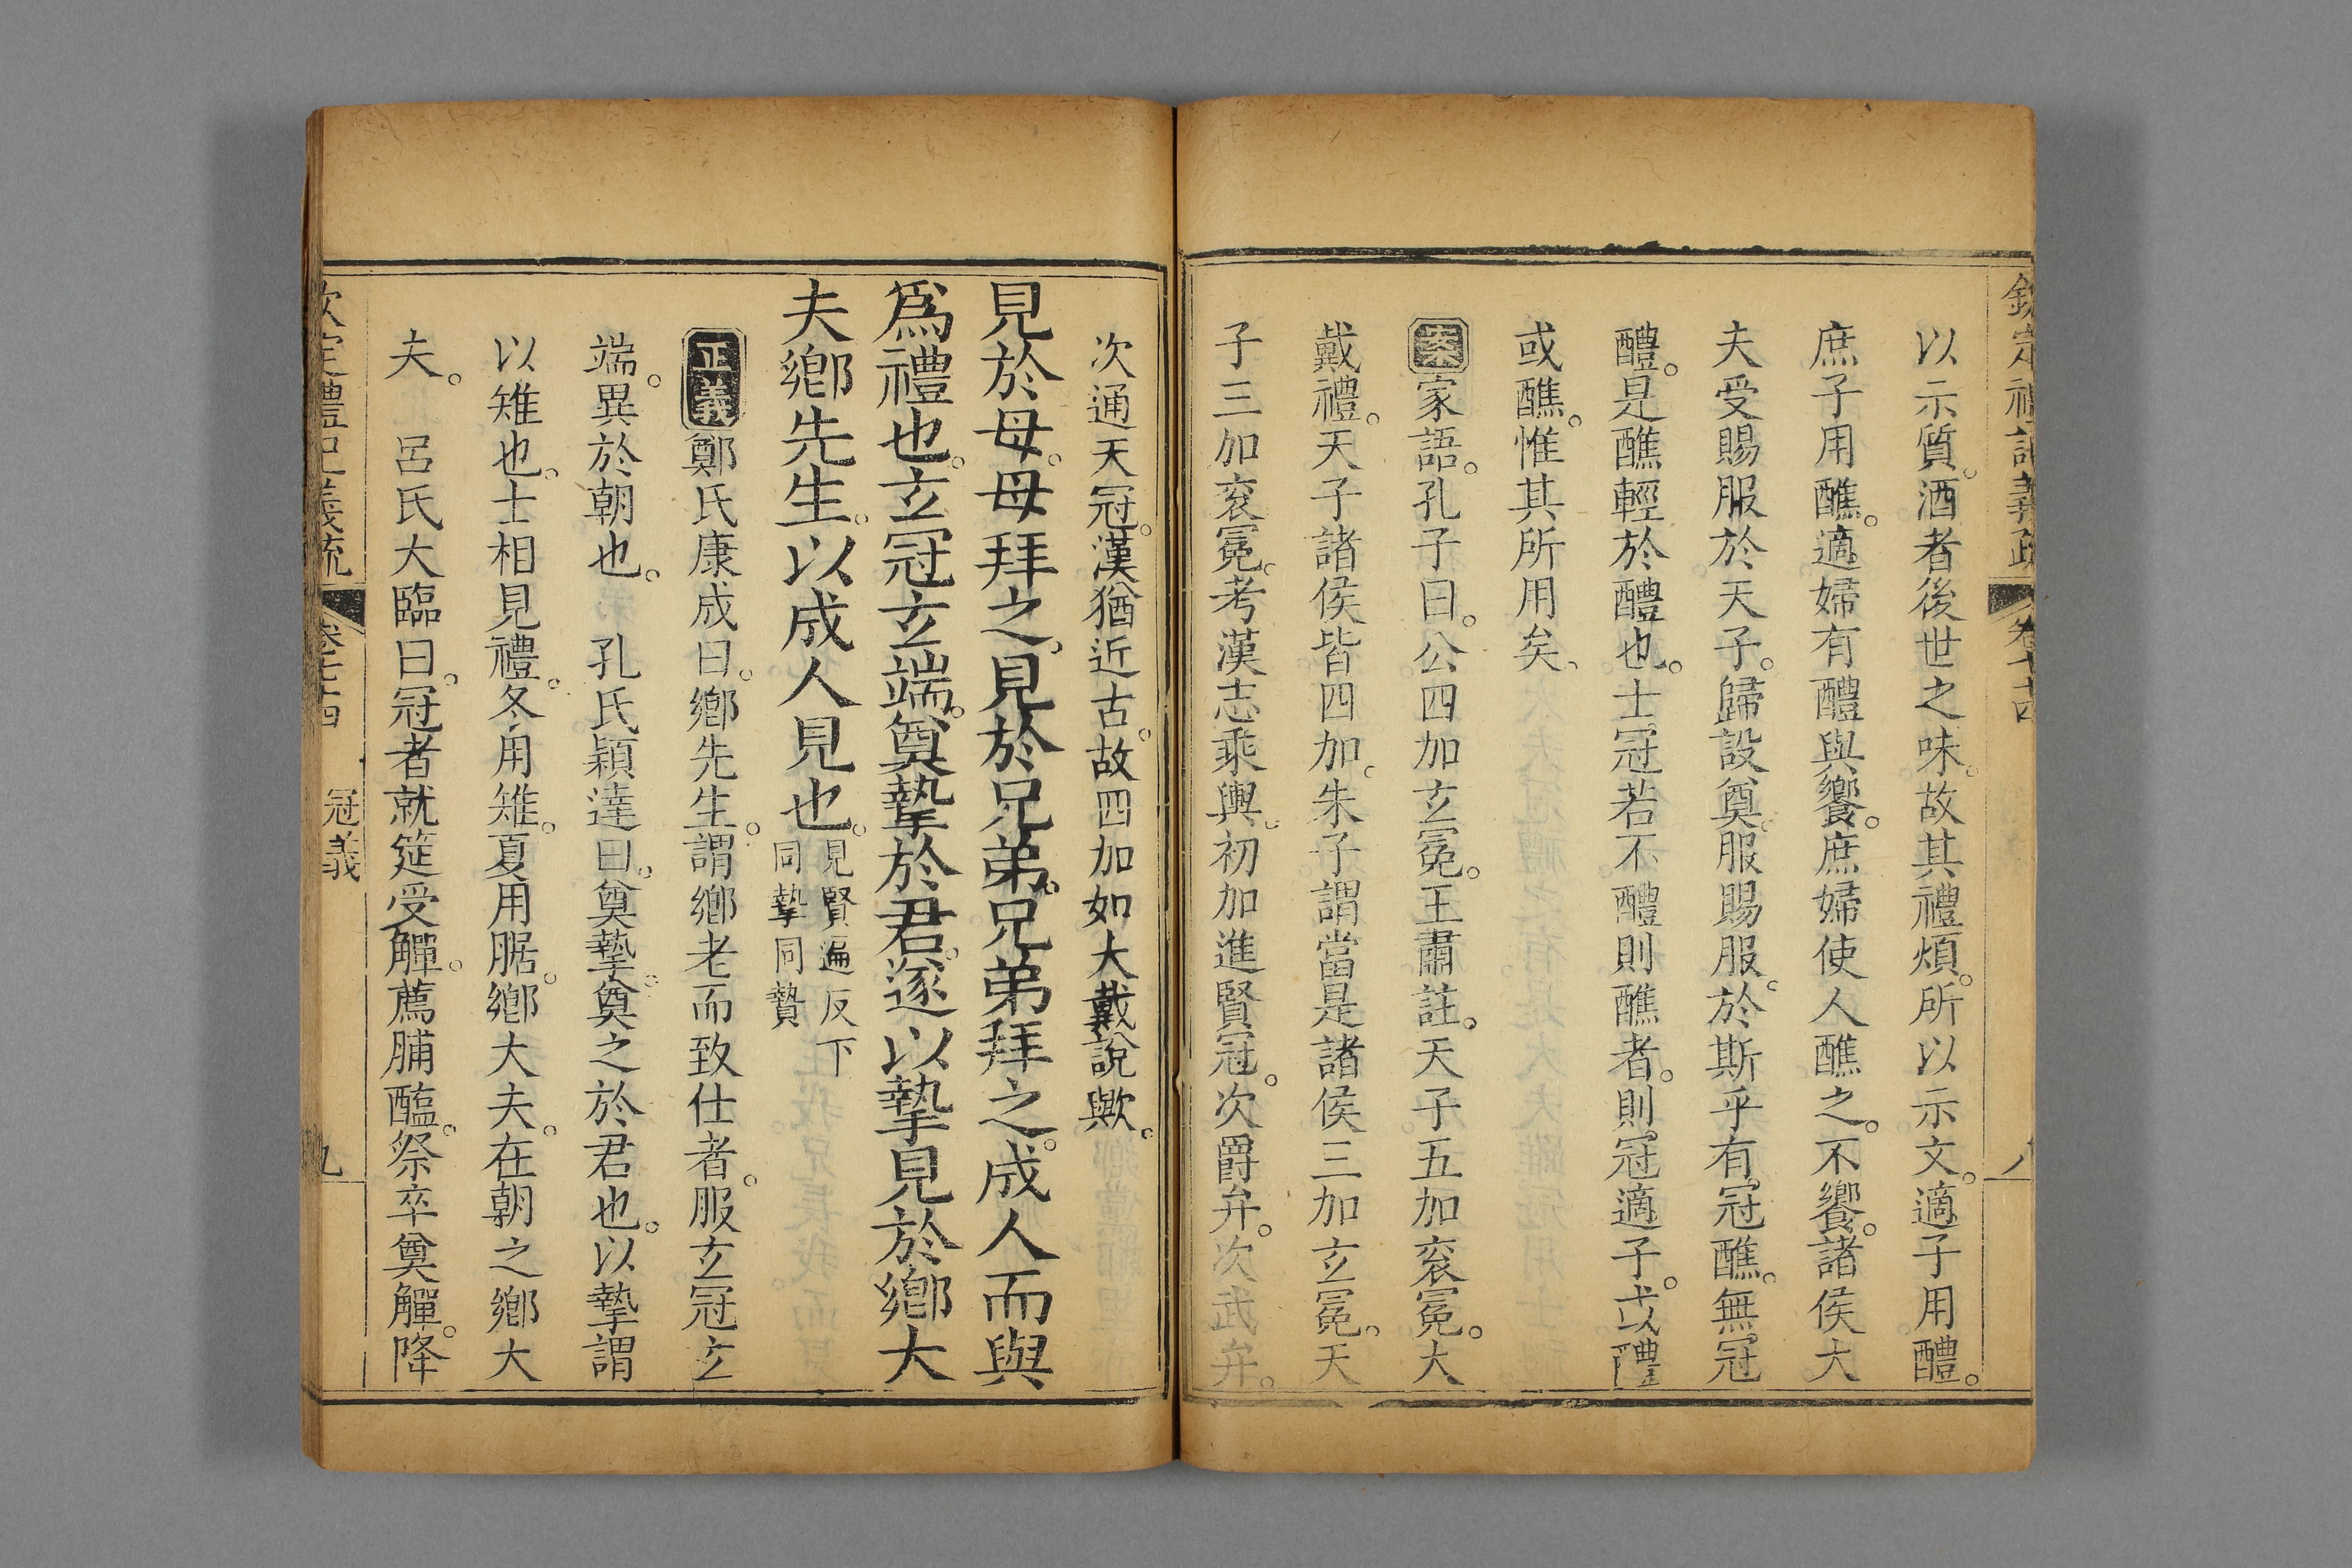 欽定禮記義疏 卷七十四 八
以示質。酒者後世之味。故其禮煩。所以示文。適子用醴。
庶子用醮。適婦有醴與饗。庶婦使人醮之。不饗。諸侯大
夫受賜服於天子。歸設奠。服賜服。於斯乎有冠醮。無冠
醴。是醮輕於醴也。士冠若不醴則醮者。則冠適子。或以醴
或醮。惟其所用矣。
案家語。孔子曰。公四加玄冕。王肅註。天子五加袞冕。大
戴禮。天子諸侯皆四加。朱子謂當是諸侯三加玄冕。天
子三加袞冕。考漢志乘輿。初加進賢冠。次爵弁。次武弁。
次通天冠。漢猶近古。故四加如大戴說歟。
見於母。母拜之。見於兄弟。兄弟拜之。成人而與
爲禮也。玄冠玄端。奠摯於君。遂以摯見於鄉大
夫鄉先生。以成人見也。見賢遍反下
同摯同贄
正義鄭氏康成曰。鄉先生。謂鄉老而致仕者。服玄冠玄
端。異於朝也。 孔氏穎達曰。奠摯。奠之於君也。以摯謂
以雉也。士相見禮。冬用雉。夏用腒。鄉大夫。在朝之鄉大
夫。 呂氏大臨曰。冠者就筵受觶。薦脯醢。祭卒奠觶。降
欽定禮記義疏 卷七十四 冠義 九